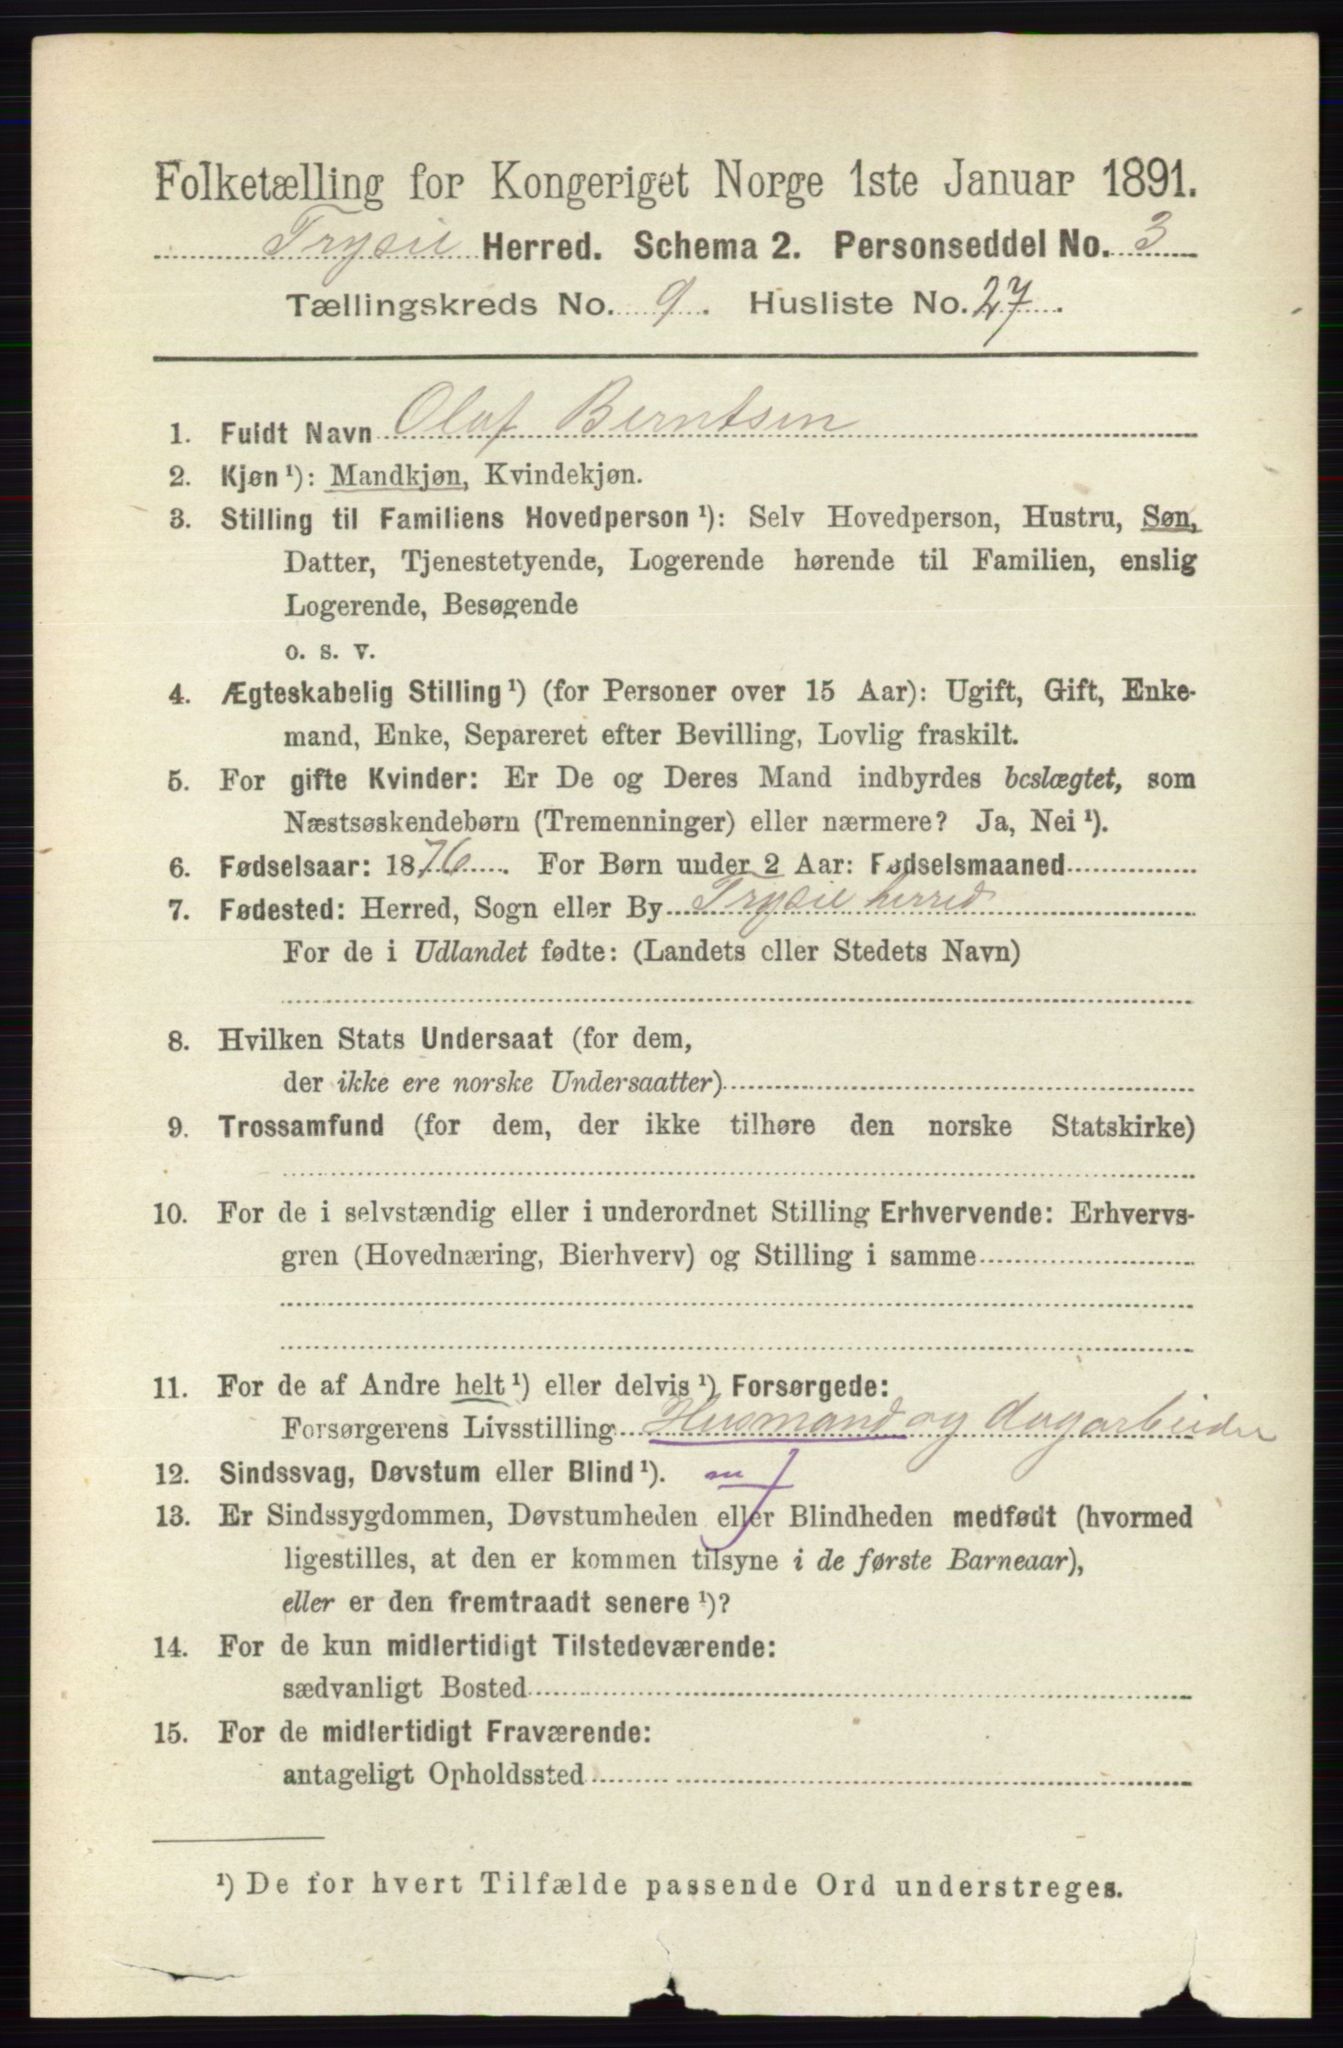 Folketælling for Kongeriget Norge 1ste Januar 1891.
Trysil Herred. Schema 2. Personseddel No. 3
Tællingskreds No. 9. Husliste No. 27.
1. Fuldt Navn Olaf Berntsen
2. Kjøn ¹): Mandkjøn, Kvindekjøn.
3. Stilling til Familiens Hovedperson ¹): Selv Hovedperson, Hustru, Søn,
Datter, Tjenestetyende, Logerende hørende til Familien, enslig
Logerende, Besøgende
o. s. v.
4. Ægteskabelig Stilling ¹) (for Personer over 15 Aar): Ugift, Gift, Enke-
mand, Enke, Separeret efter Bevilling, Lovlig fraskilt.
5. For gifte Kvinder: Er De og Deres Mand indbyrdes beslægtet, som
Næstsøskendebørn (Tremenninger) eller nærmere? Ja, Nei ¹).
6. Fødselsaar: 1876. For Børn under 2 Aar: Fødselsmaaned
7. Fødested: Herred, Sogn eller By Trysil herred
For de i Udlandet fødte: (Landets eller Stedets Navn)
8. Hvilken Stats Undersaat (for dem,
der ikke ere norske Undersaatter)
9. Trossamfund (for dem, der ikke tilhøre den norske Statskirke)
10. For de i selvstændig eller i underordnet Stilling Erhvervende: Erhvervs-
gren (Hovednæring, Bierhverv) og Stilling i samme
11. For de af Andre helt ¹) eller delvis ¹) Forsørgede:
Forsørgerens Livsstilling Husmand og dagarbeider
12. Sindssvag, Døvstum eller Blind ¹).
13. Er Sindssygdommen, Døvstumheden eller Blindheden medfødt (hvormed
ligestilles, at den er kommen tilsyne i de første Barneaar),
eller er den fremtraadt senere ¹)?
14. For de kun midlertidigt Tilstedeværende:
sædvanligt Bosted
15. For de midlertidigt Fraværende:
antageligt Opholdssted
¹) De for hvert Tilfælde passende Ord understreges.